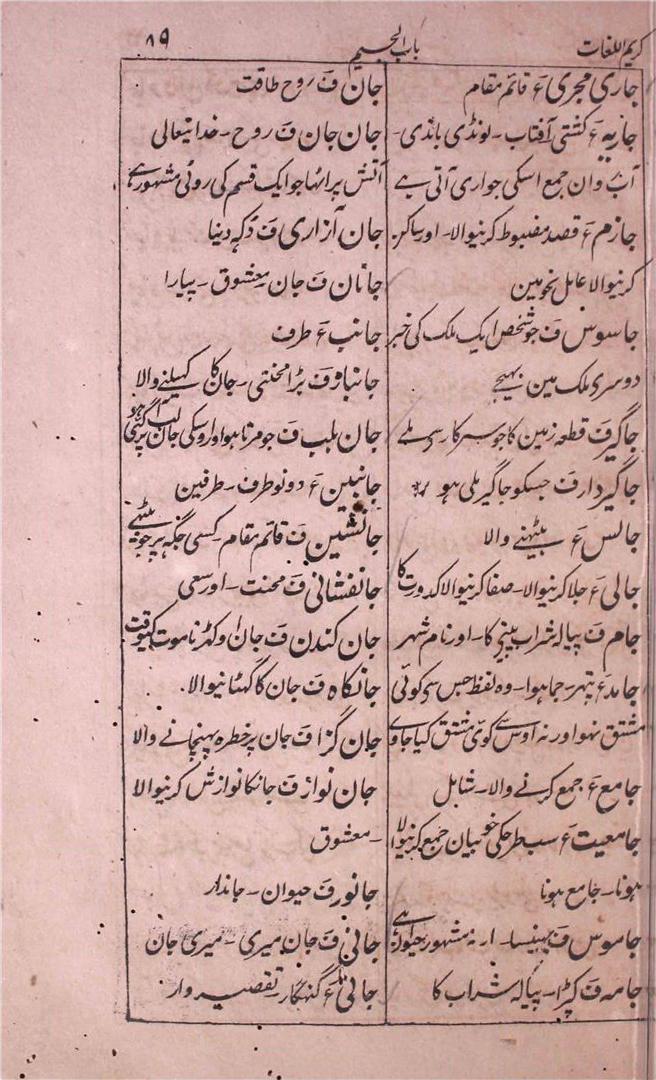 کریم اللغات
باب الجیم
۸۹
جاری مجری ءَ قائم مقام
جاریہ ءَ کشتی آفتاب۔ لونڈی باندی۔
آب وان جمع اسکی جواری آتی ہے
جازم ءَ قصد مضبوط کرنیوالا۔ اور ساکن
کرنیوالا عامل نحومین
جاسوس فَ جو شخص ایک ملک کی خبر
دوسری ملک مین بہیجے
جاگیر فَ قطعہ زمین کا جو سرکار سی ملے
جاگیردار فَ جسکو جاگیر ملی ہو
جالس ءَ بیٹہنے والا
جالی ءَ جلا کرنیوالا۔ صفا کرنیوالا کدورت کا
جام فَ پیالہ شراب پینیکا۔ اور نام شہر
جامد ءَ پتہر۔ جما ہوا۔ وہ لفظ جس سی کوئی
مشتق نہو اور نہ اوسے کوئی مشتق کیا جاوے
جامع ءَ جمع کرنے والا۔ شامل
جامعیت ءَ سب طرحکی خوبیان جمع کرنیوالا
ہونا۔ جامع ہونا
جاموس فَ بہینسا۔ ارنہ مشہور حیوان ہے
جامہ فَ کپڑا۔ پیالہ شراب کا
جان فَ روح طاقت
جان جان فَ روح۔ خدا یتعالی
آتش پر اٹہا جو ایک قسم کی روٹی مشہور ہے
جان آزاری فَ دکہہ دنیا
جانان فَ جان۔ معشوق۔ پیارا
جانب ءَ طرف
جانباز فَ بڑا محنتی۔ جان کا کہیلنے والا
جان بلب فَ جو مرتا ہو اور اوسکی جان لب پر آگئی ہو
جانبین ءَ دونو طرف۔ طرفین
جانشین فَ قائم مقام۔ کسی جگہ پر جو بیٹہے
جانفشانی فَ محنت۔ اور سعی
جان کندن فَ جان اوکہڑنا موت کیوقت
جانکاہ فَ جان کا گہٹانیوالا۔
جان گزا فَ جان پر خطرہ پہنچانے والا
جان نواز فَ جانکا نوازش کرنیوالا
۔ معشوق
جانور فَ حیوان۔ جاندار
جانی فَ جان میری۔ میری جان
جانی ءَ گنہگار۔ تقصیر وار